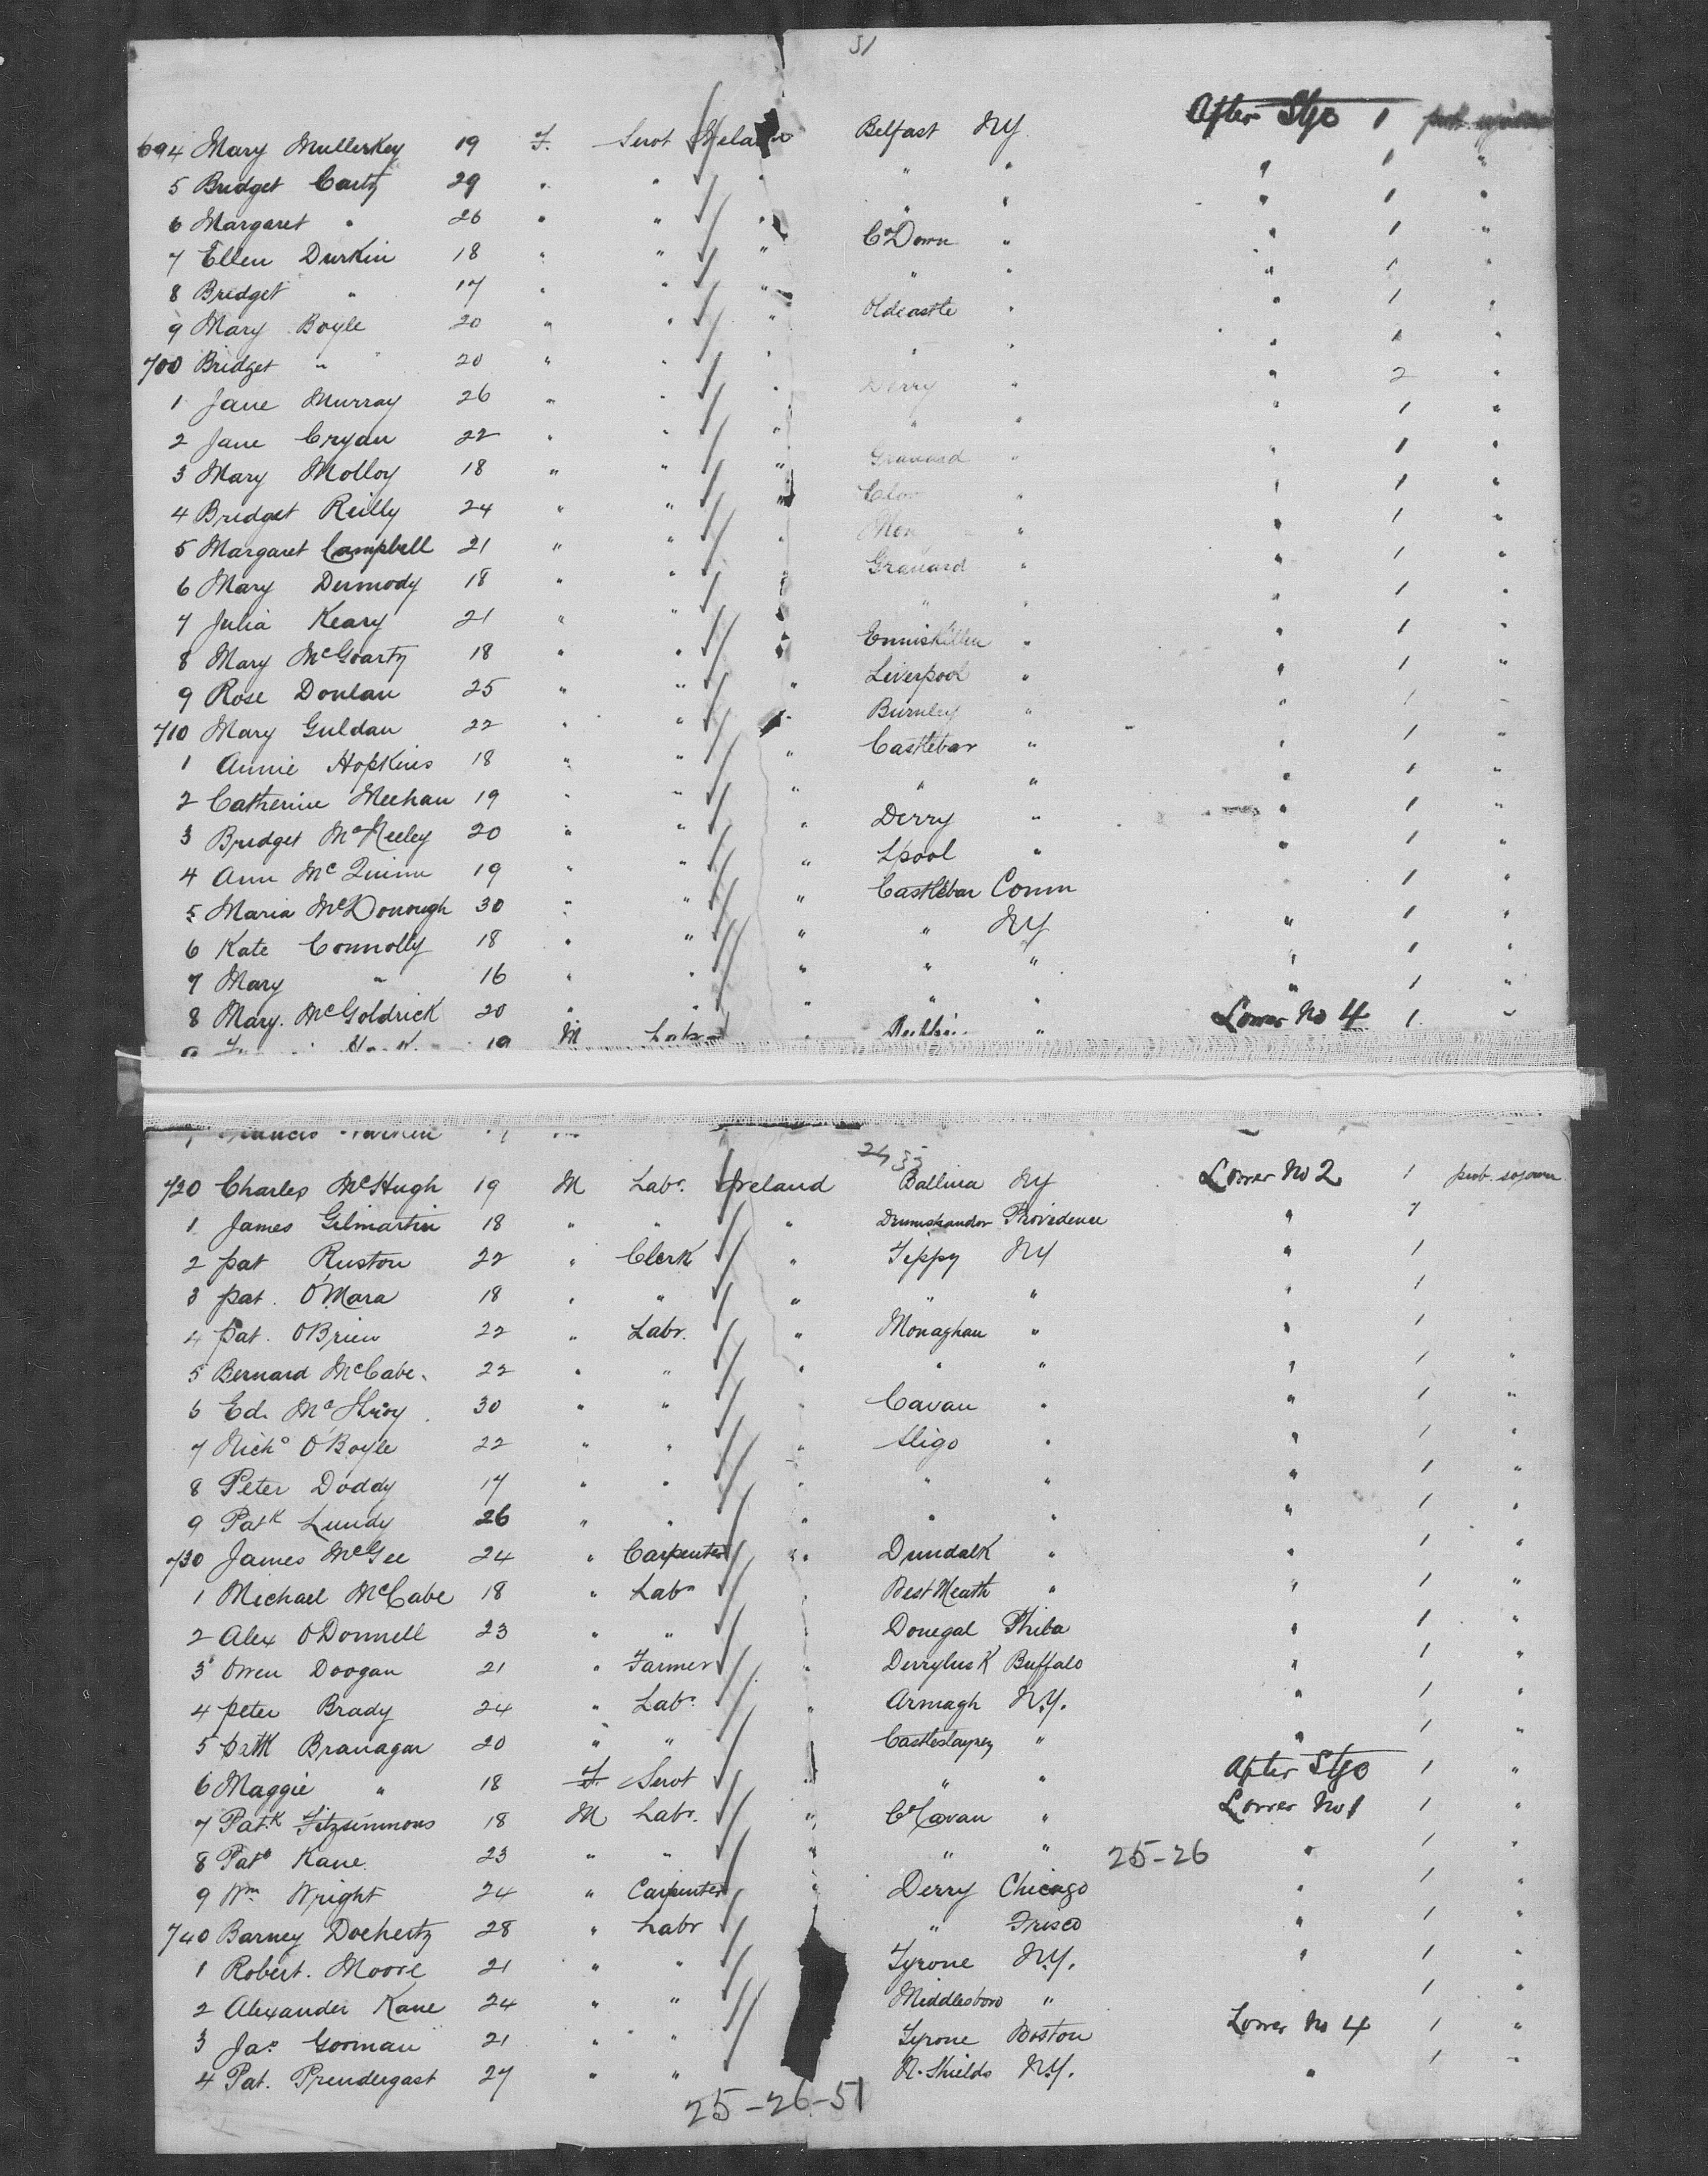 51
694 Mary Mullerkey 19 F. Servt Ireland Belfast NY. After Stge 1
5 Bridget Carty 29 " " " " " " 1 "
6 Margaret " 26 " " " " " " 1 "
7 Ellen Durkin 18 " " " Co Down " " 1 "
8 Bridget " 17 " " " " " " 1 "
9 Mary Boyle 20 " " " Oldcastle " " 1 "
700 Bridget " 20 " " " " " " 1 "
1 Jane Murray 26 " " " Derry " " 2 "
2 Jane Cryan 22 " " " " " " 1 "
3 Mary Molloy 18 " " " Granard " " 1 "
4 Bridget Reilly 24 " " " Clon " " 1 "
5 Margaret Campbell 21 " " " Mon " " 1 "
6 Mary Dermody 18 " " " Granard " " 1 "
7 Julia Keary 21 " " " " " " 1 "
8 Mary McGoarty 18 " " " Enniskillen " " 1 "
9 Rose Donlan 25 " " " Liverpool " " 1 "
710 Mary Guldan 22 " " " Burnley " " 1 "
1 Annie Hopkins 18 " " " Castlebar " " 1 "
2 Catherine Meehan 19 " " " " " " 1 "
3 Bridget McNeeley 20 " " " Derry " " 1 "
4 Ann McQuinn 19 " " " Lpool " " 1 "
5 Maria McDonough 30 " " " Castlebar Conn 1 "
6 Kate Connolly 18 " " " " NY " 1 "
7 Mary " 16 " " " " " " 1 "
8 Mary. McGoldrick 20 " " " " " " 1 "
19 M Labr " " Lower No 4 1. "
Francis
24 35
720 Charles McHugh 19 M Labr. Ireland Ballina NY Lower No 2 1 prot. sojourn
1 James Gilmartin 18 " " " Providence " 1
2 pat Ruston 22 " Clerk " Tippy NY " 1
3 pat. O'Mara 18 " " " " " " 1
4 pat. OBrien 22 " Labr. " Monaghan " " 1
5 Bernard McCabe. 22 " " " " " " 1 "
6 Ed. 30 " " " Cavan " " 1 "
7 Micho O'Boyle 22 " " " Sligo " " 1 "
8 Peter Doddy 17 " " " " " " 1 "
9 Patk Lundy 26 " " " " " " 1 "
730 James McGee 24 " Carpenter " Dundalk " " 1 "
1 Michael McCabe 18 " Labr " West Meath " " 1 "
2 Alex ODonnell 23 " " " Donegal Phila " 1 "
3 Owen Doogan 21 " Farmer " Derrylusk Buffalo " 1 "
4 peter Brady 24 " Labr. " Armagh N.Y. " 1 "
5 patk Branagan 20 " " " Castleblayney " " 1 "
6 Maggie " 18 F. Servt " " " After Stge 1 "
7 Patk Fitzsimmons 18 M Labr. " Co Cavan " Lower No 1 1 "
8 Patk Kane. 23 " " " " " 25-26 " 1 "
9 Wm Wright 24 " Carpenter " Derry Chicago " 1 "
740 Barney Dochertz 28 " Labr " Frisco " 1 "
1 Robert. Moore 21 " " Tyrone N.Y. " 1 "
2 Alexander Kane 24 " " Middlesboro " 1 "
3 Jas. Gorman 21 " " Tyrone Boston Lower No 4 1 "
4 Pat. Prendergast 27 " " N. Shields N.Y. " 1 "
25-26-51